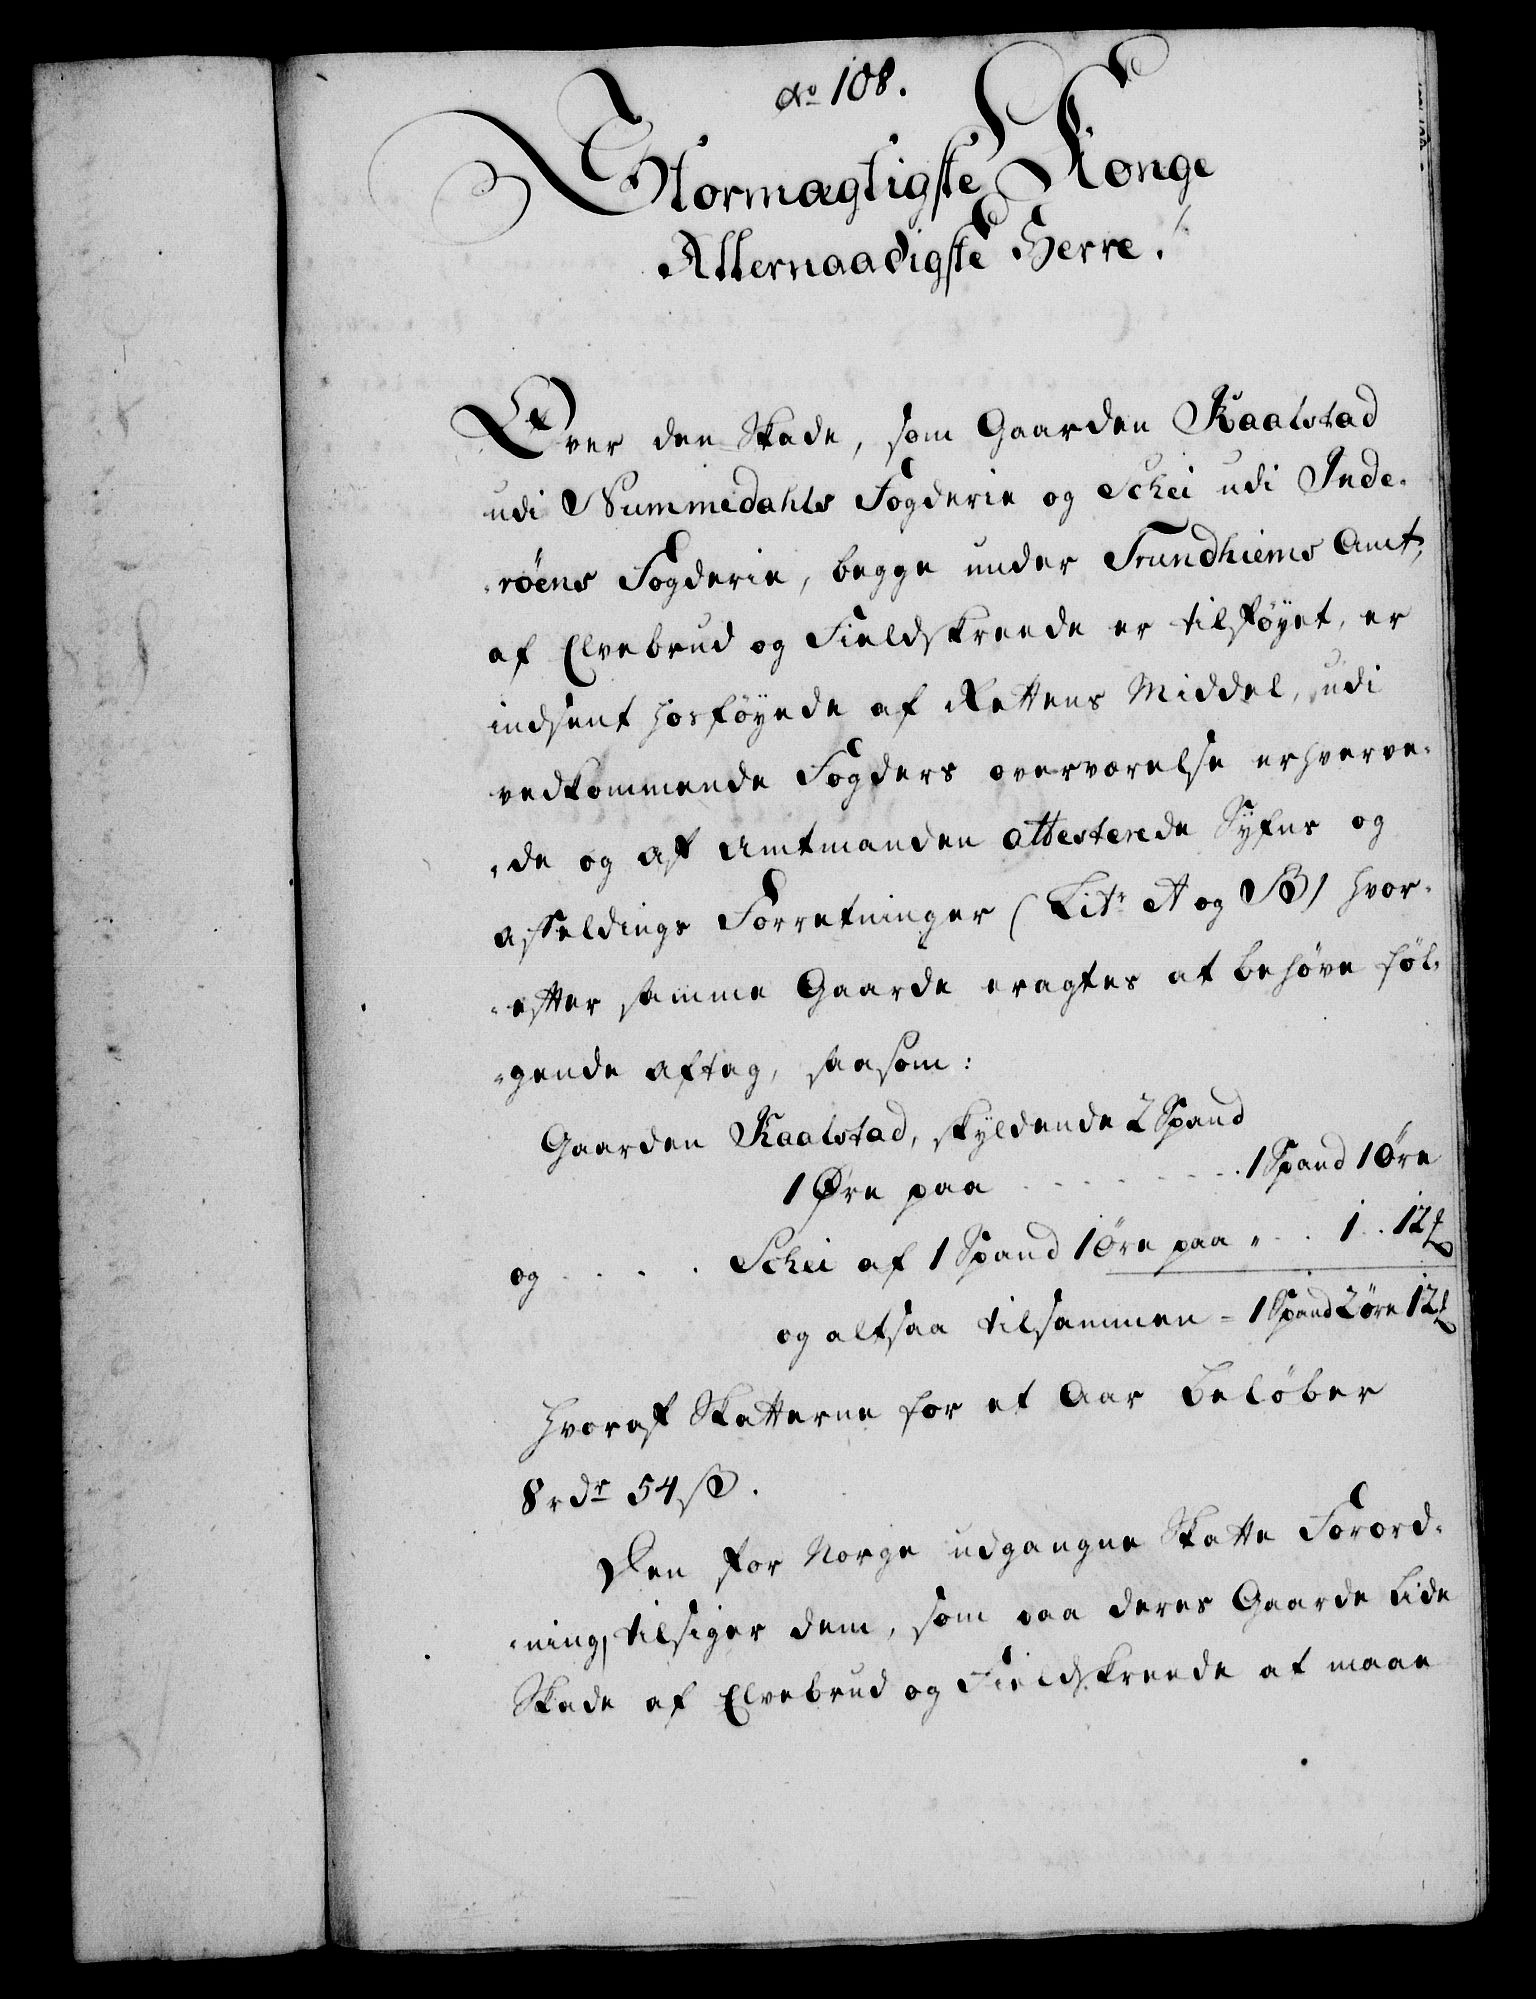 No 108.
Stormægtigste Konge
Allernaadigste Herre!
Over den Skade, som Gaarden Kaalstad
udi Nummedahls Fogderie og Schei udi Inde-
-röens Fogderie, begge under Trundhiems Amt,
af Elvebrud og Fieldskreede er tilföyet, er
indsent hosföyede af Rettens Middel, udi
vedkommende Fogders overværelse erhverve-
-de og af Amtmanden attesterede Syfns og
affeldings Forretninger (Litr. A og B) hvor-
-efter samme Gaarde eragtes at behöve föl-
-gende aftag, saasom:
Gaarden Kaalstad, skyldende 2 Spand
1 Øre paa . . . . . . . 1 Spand 1 Öre
og . . . . Schei af 1 Spand 1 öre paa " . . 1 . . 12 ℔
og altsaa tilsammen = 1 Spand 2 öre 12 ℔
hvoraf Skatterne for et Aar belöber
8 rdr 54 ß.
Den for Norge udgangne Skatte Forord-
-ning, tilsiger dem, som paa deres Gaarde lide
Skade af Elvebrud og Fieldskreede at maae